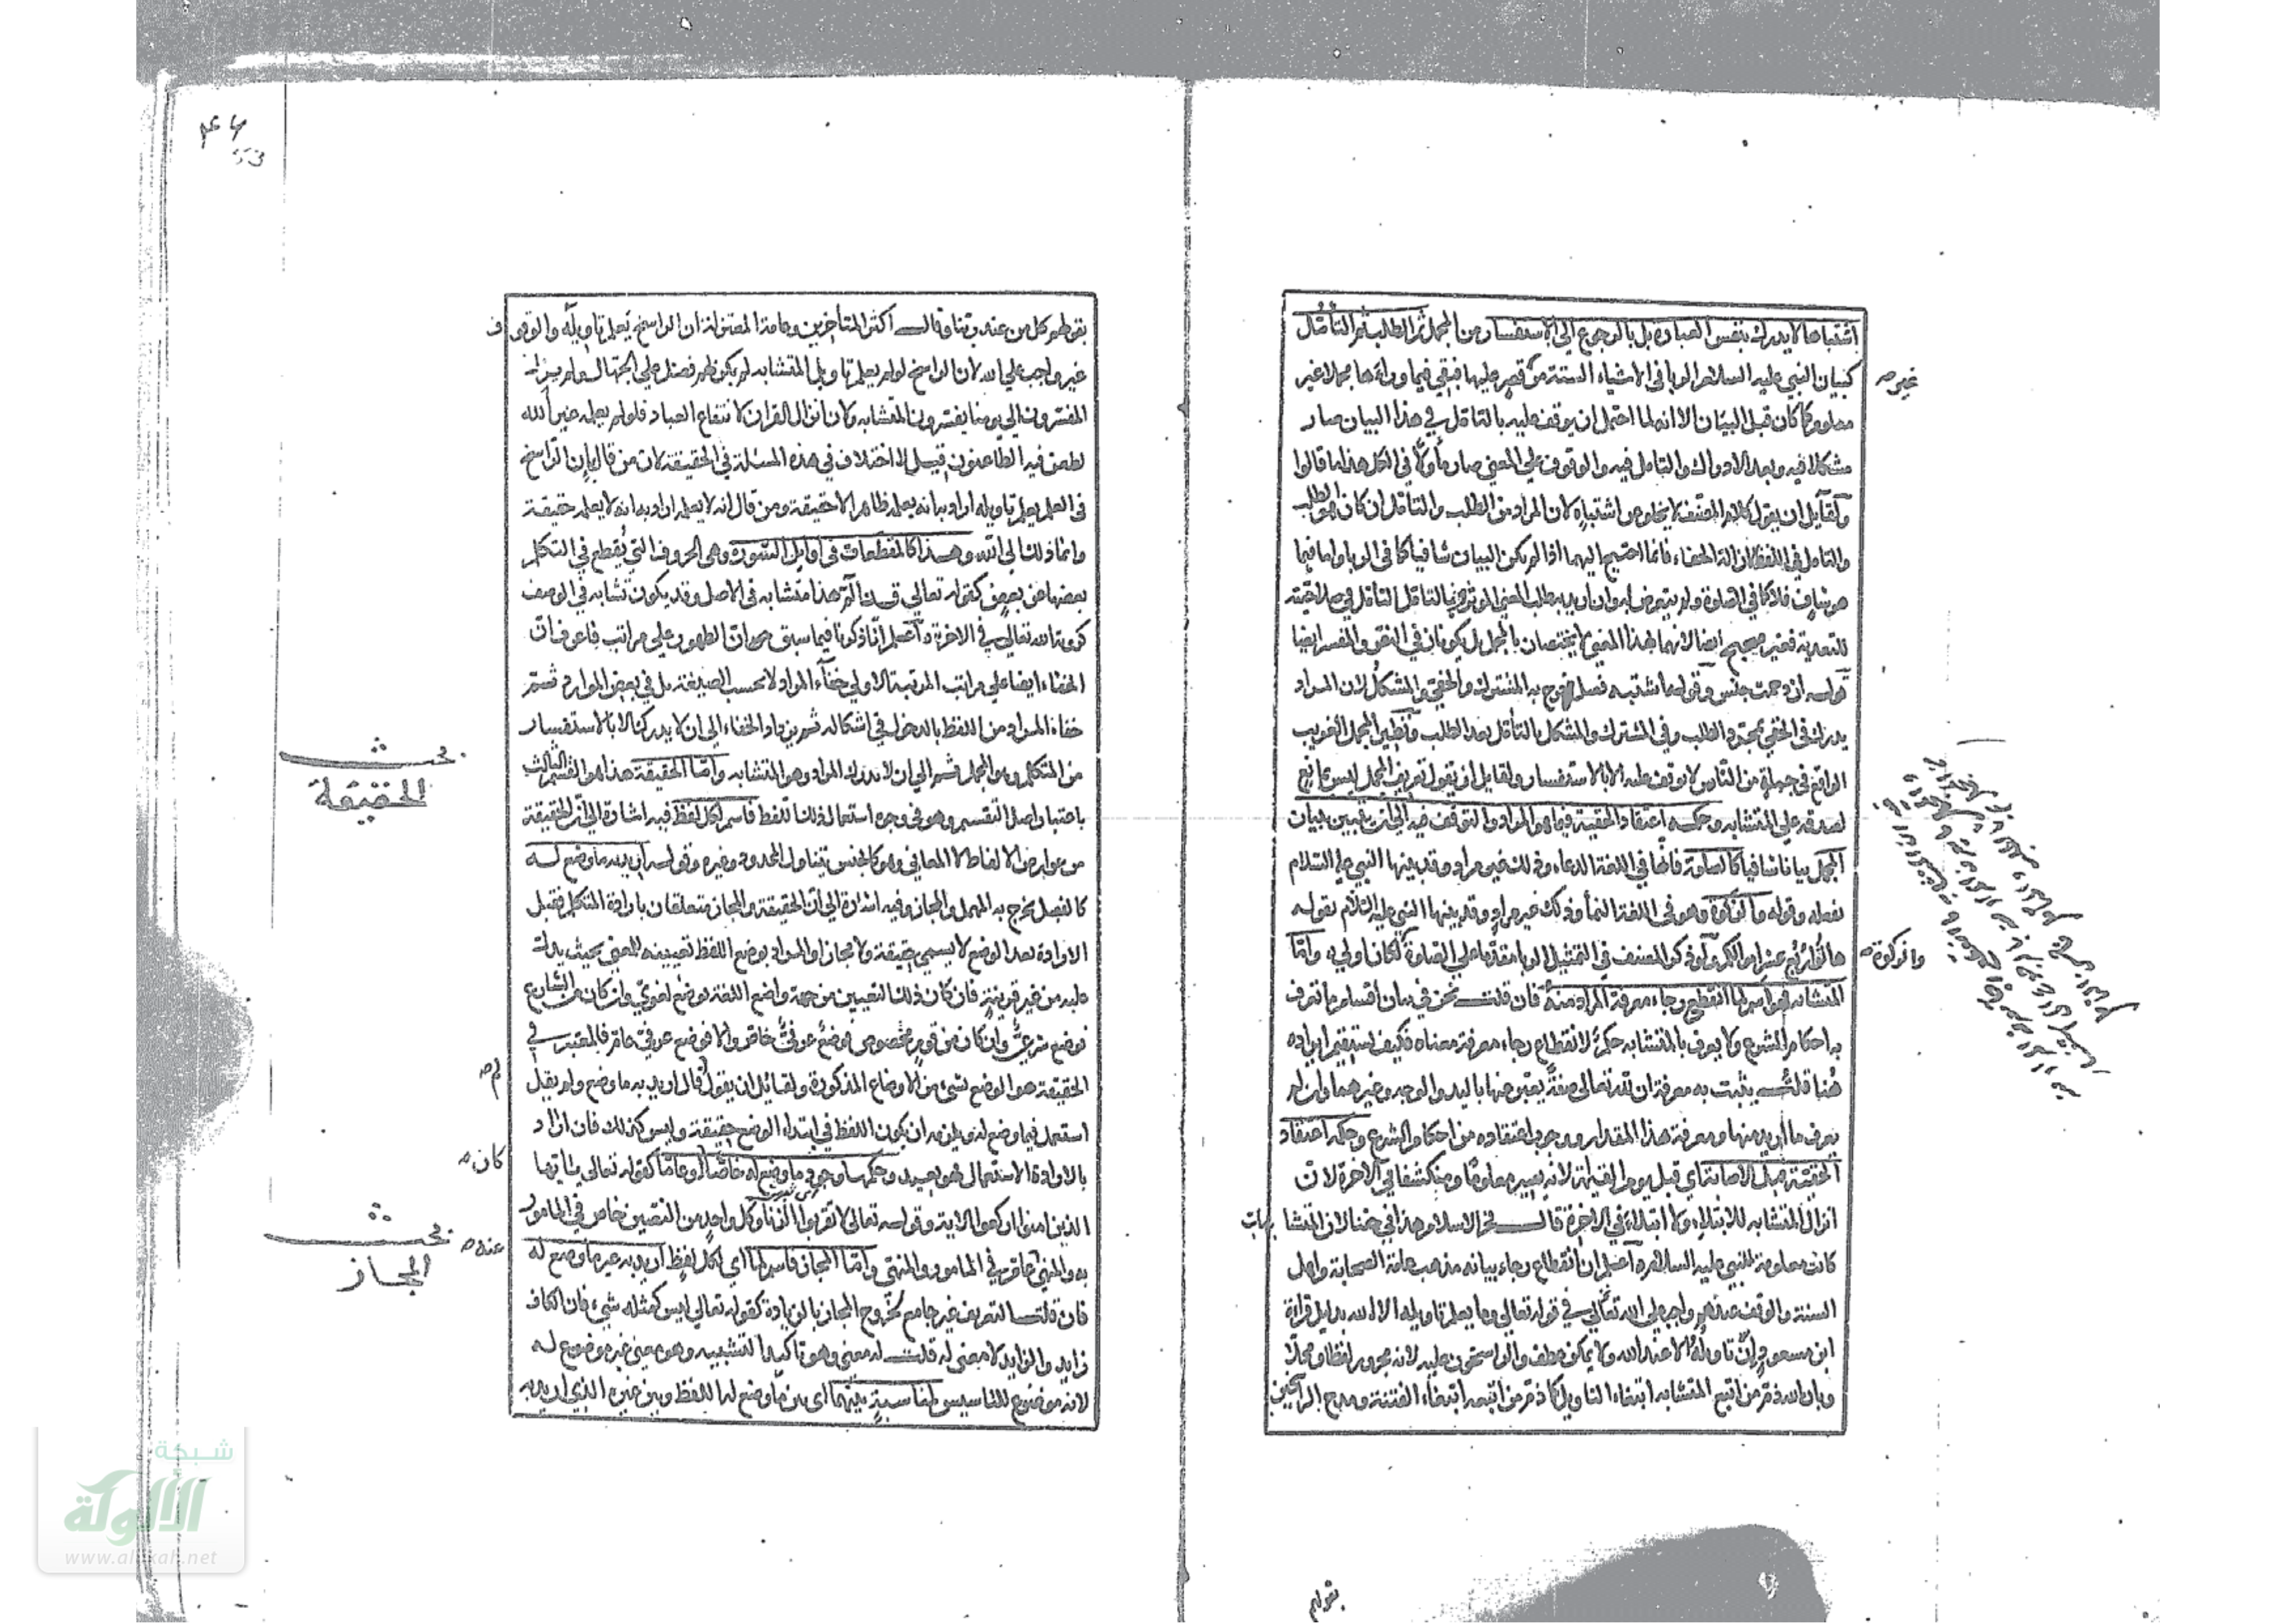 اشتباها لا يدرك بنفس العبارة بل بالرجوع الى الاستفسار من المجمل ثم الطلب ثم التأمل
كبيان النبي عليه السلام الربا في الاشياء الستة من قصر عليها فبقي فيما وراءها مجملا غير
معلوم كما كان قبل البيان الا انه لما احتمل ان يوقف عليه بالتامل في هذا البيان صار
مشكلا فيه وبعد الادراك والتامل فيه والوقوف على المعنى صار مأولا في الكل هذا ما قالوا
ولقايل ان يقول كلام المصنف لا يخلو عن اشتباه لان المراد من الطلب والتامل ان كان هو الطلب
والتامل في اللفظ لازالة الخفاء فانما احتيج اليهما اذا لم يكن البيان شافيا كما في الربا واما فيما
هو شاف فلا كما في الصلوة ولم يتعرض له وان اريد به طلب المعنى الموثر والتامل في صلاحيته
للتعدية فغير صحيح ايضا لانهما لهذا المعنى لا يختصان بالمجمل بل يكونان في النص والمفسر ايضا
قوله ازدحمت جنس وقوله ما اشتبه فصل خرج به المشترك والخفي والمشكل لان المراد
يدرك في الخفي بمجرد الطلب وفي المشترك والمشكل بالتأمل بعد الطلب ونظير المجمل الغريب
الواقع في جملة من الناس لا يوقف عليه الا بالاستفسار ولقايل ان يقول تعريف المجمل ليس بمانع
لصدقه على المتشابه وحكمه اعتقاد الحقية فيما هو المراد والتوقف فيه الى ان يتبين ببيان
المجمل بيانا شافيا كالصلوة فانها في اللغة الدعاء وذلك غير مراد وقد بينها النبي عليه السلام
بفعله وقوله والزكوة وهو في اللغة النماء وذلك غير مراد وقد بينها النبي عليه السلام بقوله
هاتوا ربع عشر اموالكم ولو ذكر المصنف في التمثيل الربا مقدما على الصلوة لكان اولى واما
المتشابه فهو اسم لما انقطع رجاء معرفة المراد منه فان قلت نحن في بيان اقسام ما تعرف
به احكام الشرع ولا يعرف بالمتشابه حكم لانقطاع رجاء معرفة معناه فكيف يستقيم ايراده
هنا قلت يثبت به معرفة ان لله تعالى صفة يعبر عنها باليد والوجه وغيرهما وان لم
يعرف ما اريد منها ومعرفة هذا المقدار ووجوب اعتقاده من احكام الشرع وحكمه اعتقاد
الحقية قبل الاصابة اي قبل يوم القيامة لانه يصير معلوما ومنكشفا في الاخرة لان
انزال المتشابه للابتلاء ولا ابتلاء في الاخرة قال فخر الاسلام هذا في حقنا لان المتشابهات
كانت معلومة للنبي عليه السلام اعلم ان انقطاع رجاء بيانه مذهب عامة الصحابة واهل
السنة والوقف عندهم واجب على الله تعالى في قوله تعالى وما يعلم تاويله الا الله بدليل قراءة
ابن مسعود ان تاويله الا عند الله ولا يمكن عطف والراسخون عليه لانه مجرور لفظا ومحلا
وبان الله ذم من اتبع المتشابه ابتغاء التاويل كما ذم من اتبعه ابتغاء الفتنة ومدح الراسخين
غير صح
والزكوة صح
بقولهم
بقولهم كل من عند ربنا وقال اكثر المتأخرين وعامة المعتزلة ان الراسخ يعلم تاويله والوقوف
غير واجب على الله لان الراسخ لو لم يعلم تاويل المتشابه لم يكن لهم فضل على الجهال ولم يزل
المفسرون الى يومنا يفسرون المتشابه ولان انزال القران لانتفاع العباد فلو لم يعلمه غير الله
لطعن فيه الطاعنون قيل لا اختلاف في هذه المسئلة في الحقيقة لان من قال بان الراسخ
في العلم يعلم تاويله اراد به انه يعلمه ظاهرا لا حقيقة ومن قال انه لا يعلم اراد به انه لا يعلمه حقيقة
وانما ذلك الى الله وهذا كالمقطعات في اوايل السورة وهي الحروف التي يقطع في التكلم
بعضها عن بعض كقوله تعالى ق ن الم هذا متشابه في الاصل وقد يكون تشابه في الوصف
كرؤية الله تعالى في الاخرة واعلم انا ذكرنا فيما سبق ان الظهور على مراتب فاعرف ان
الخفاء ايضا على مراتب المرتبة الاولى خفاء المراد لا بحسب الصيغة بل في بعض الموارد ثم
خفاء المراد من اللفظ بالدخول في اشكاله ثم يزداد الخفاء الى ان لا يدرك الا بالاستفسار
من المتكلم وهو المجمل ثم الى ان لا يدرك المراد وهو المتشابه واما الحقيقة هذا هو القسم الثالث
باعتبار اصل التقسيم وهو في وجوه استعمال ذلك اللفظ فاسم لكل لفظ فيه اشارة الى ان الحقيقة
من عوارض الالفاظ لا المعاني وهو كالجنس يتناول المحدود وغيره وقوله اريد به ما وضع له
كالفصل يخرج به المهمل والمجاز وفيه اشارة الى ان الحقيقة والمجاز متعلقان بارادة المتكلم فقبل
الارادة بعد الوضع لا يسمى حقيقة ولا مجازا والمراد بوضع اللفظ تعيينه للمعنى بحيث يدل
عليه من غير قرينة فان كان ذلك التعيين من جهة واضع اللغة فوضع لغوي وان كان من الشارع
فوضع شرعي وان كان من قوم مخصوص فوضع عرفي خاص والا فوضع عرفي عام فالمعتبر في
الحقيقة هو الوضع لشيء من الاوضاع المذكورة ولقائل ان يقول قال اريد به ما وضع ولم يقل
استعمل فيما وضع له ويلزمه ان يكون اللفظ في ابتداء الوضع حقيقة وليس كذلك فان اراد
بالارادة الاستعمال فهو بعيد وحكمها وجود ما وضع له خاصا او عاما كقوله تعالى يا ايها
الذين امنوا اركعوا الاية وقوله تعالى لا تقربوا الزنا وكل واحد من النصين خاص في المامور
به والمنهي عام في المامور والمنهي واما المجاز فاسم لما اي لكل لفظ اريد به غير ما وضع له
فان قلت التعريف غير جامع لخروج المجاز بالزيادة كقوله تعالى ليس كمثله شيء فان الكاف
زايد والزايد لا معنى له قلت له معنى وهو تاكيد التشبيه وهو معنى غير موضوع له
لانه موضوع للتاسيس لمناسبة بينهما اي بين ما وضع له اللفظ وبين غيره الذي اريد به
بحث
الحقيقة
لم صح
كان صح
عنه صح
بحث
المجاز
53
شبكة
الألوكة
www.alukah.net